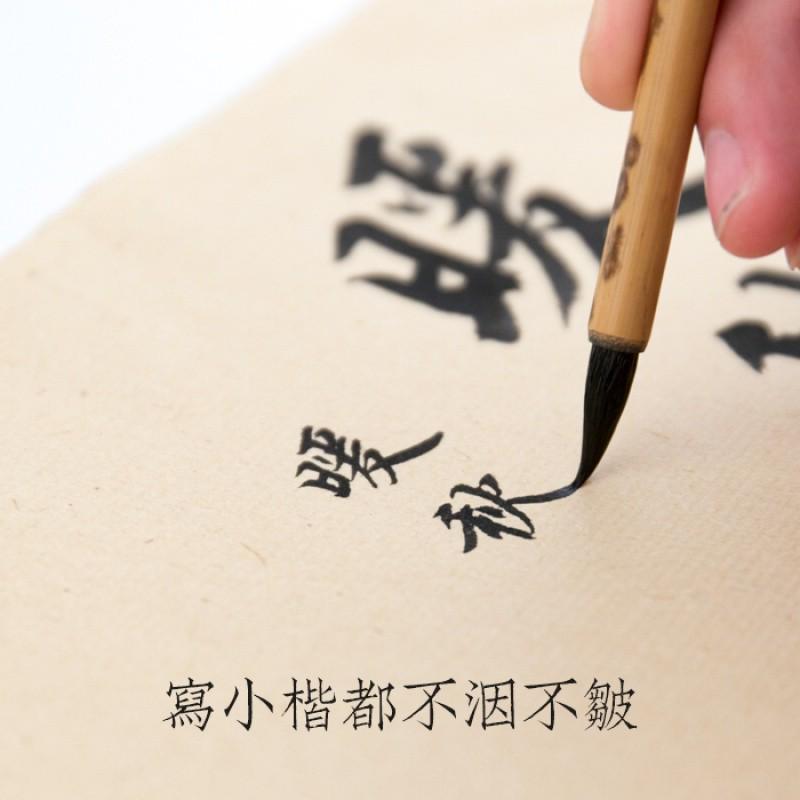 暖
暖
秋
寫小楷都不洇不皺